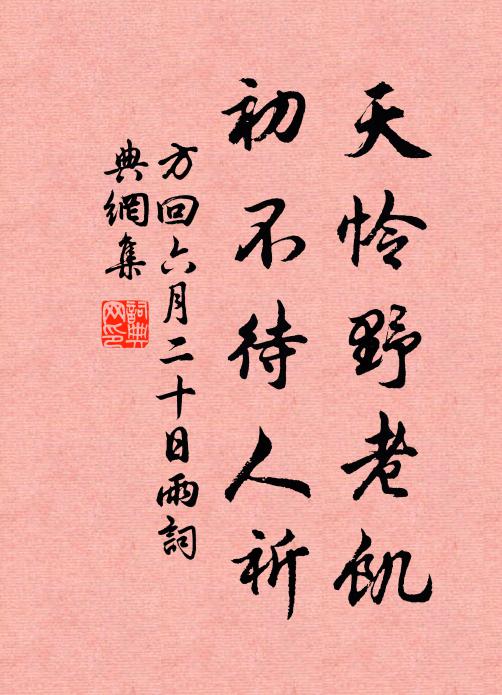 天怜野老飢
初不待人祈
方回六月二十日雨詞
典網集
詞典
网印